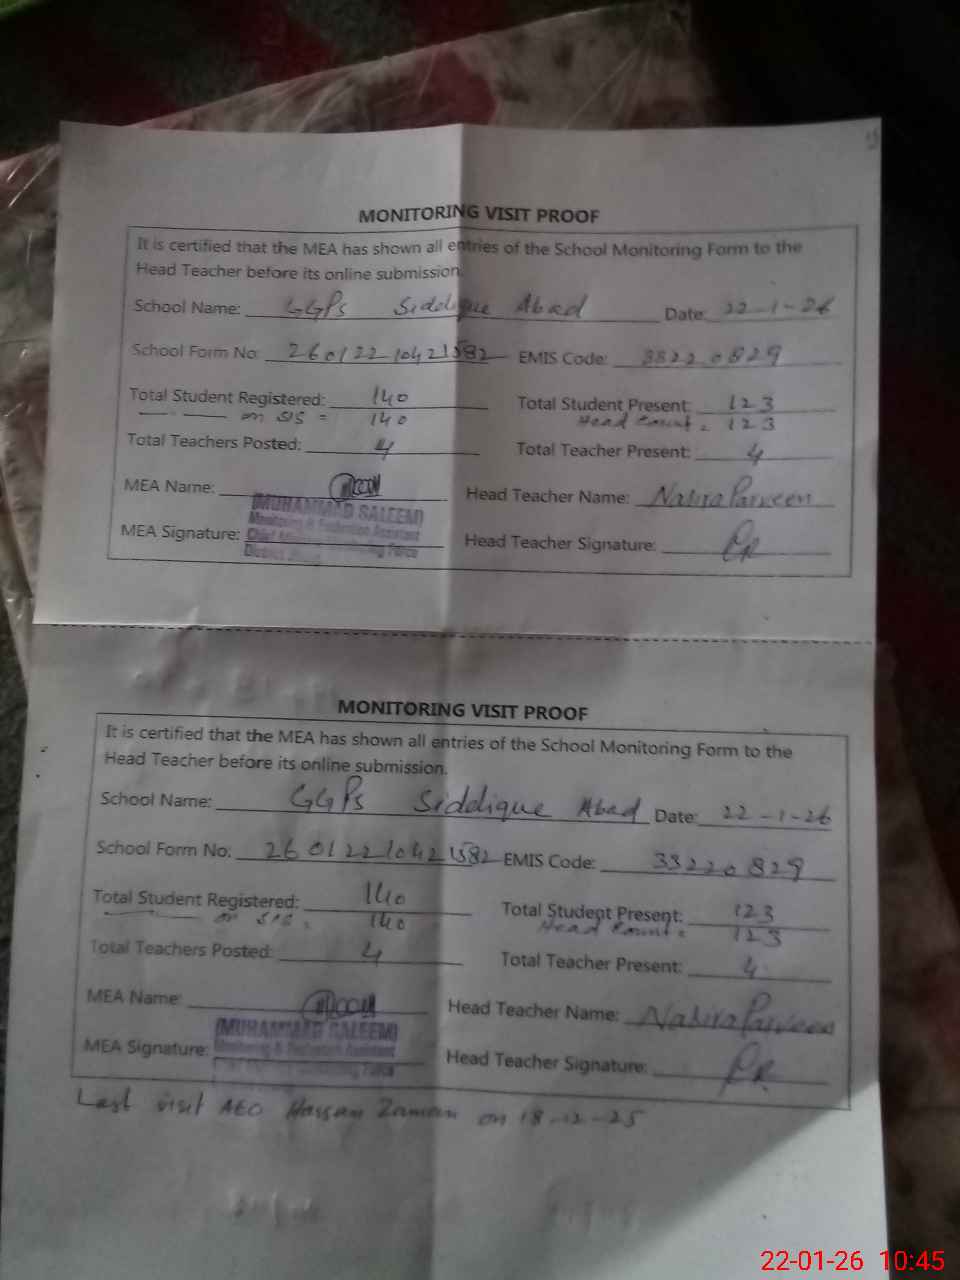 MONITORING VISIT PROOF
It is certified that the MEA has shown all entries of the School Monitoring Form to the
Head Teacher before its online submission.
School Name: GGPS Siddique Abad Date: 22-1-26
School Form No: 26012210421582 EMIS Code: 33220829
Total Student Registered: 140 Total Student Present: 123
on SIS = 140 Head Count = 123
Total Teachers Posted: 4 Total Teacher Present: 4
MEA Name: Head Teacher Name: Nabira Parveen
(MUHAMMAD SALEEM)
Monitoring & Evaluation Assistant
MEA Signature: Head Teacher Signature:
Chief Monitoring Force
District
MONITORING VISIT PROOF
It is certified that the MEA has shown all entries of the School Monitoring Form to the
Head Teacher before its online submission.
School Name: GGPS Siddique Abad Date: 22-1-26
School Form No: 26012210421582 EMIS Code: 33220829
Total Student Registered: 140 Total Student Present: 123
on SIS = 140 Head Count = 123
Total Teachers Posted: 4 Total Teacher Present: 4
MEA Name: Head Teacher Name: Nabira Parveen
(MUHAMMAD SALEEM)
MEA Signature: Monitoring & Evaluation Assistant Head Teacher Signature:
Monitoring Force
Last visit AEO Hassan Zaman on 18-12-25
22-01-26 10:45